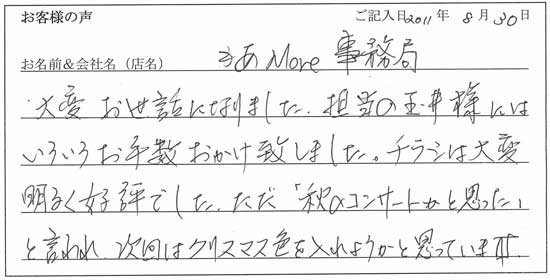 お客様の声 ご記入日2011年 8月30日
お名前&会社名（店名） きあMore 事務局
大変 お世話になりました. 担当の玉井様には
いろいろお手数おかけ致しました。チラシは大変
明るく好評でした. ただ「秋のコンサートかと思った」
と言われ、次回はクリスマス色を入れようかと思っています.